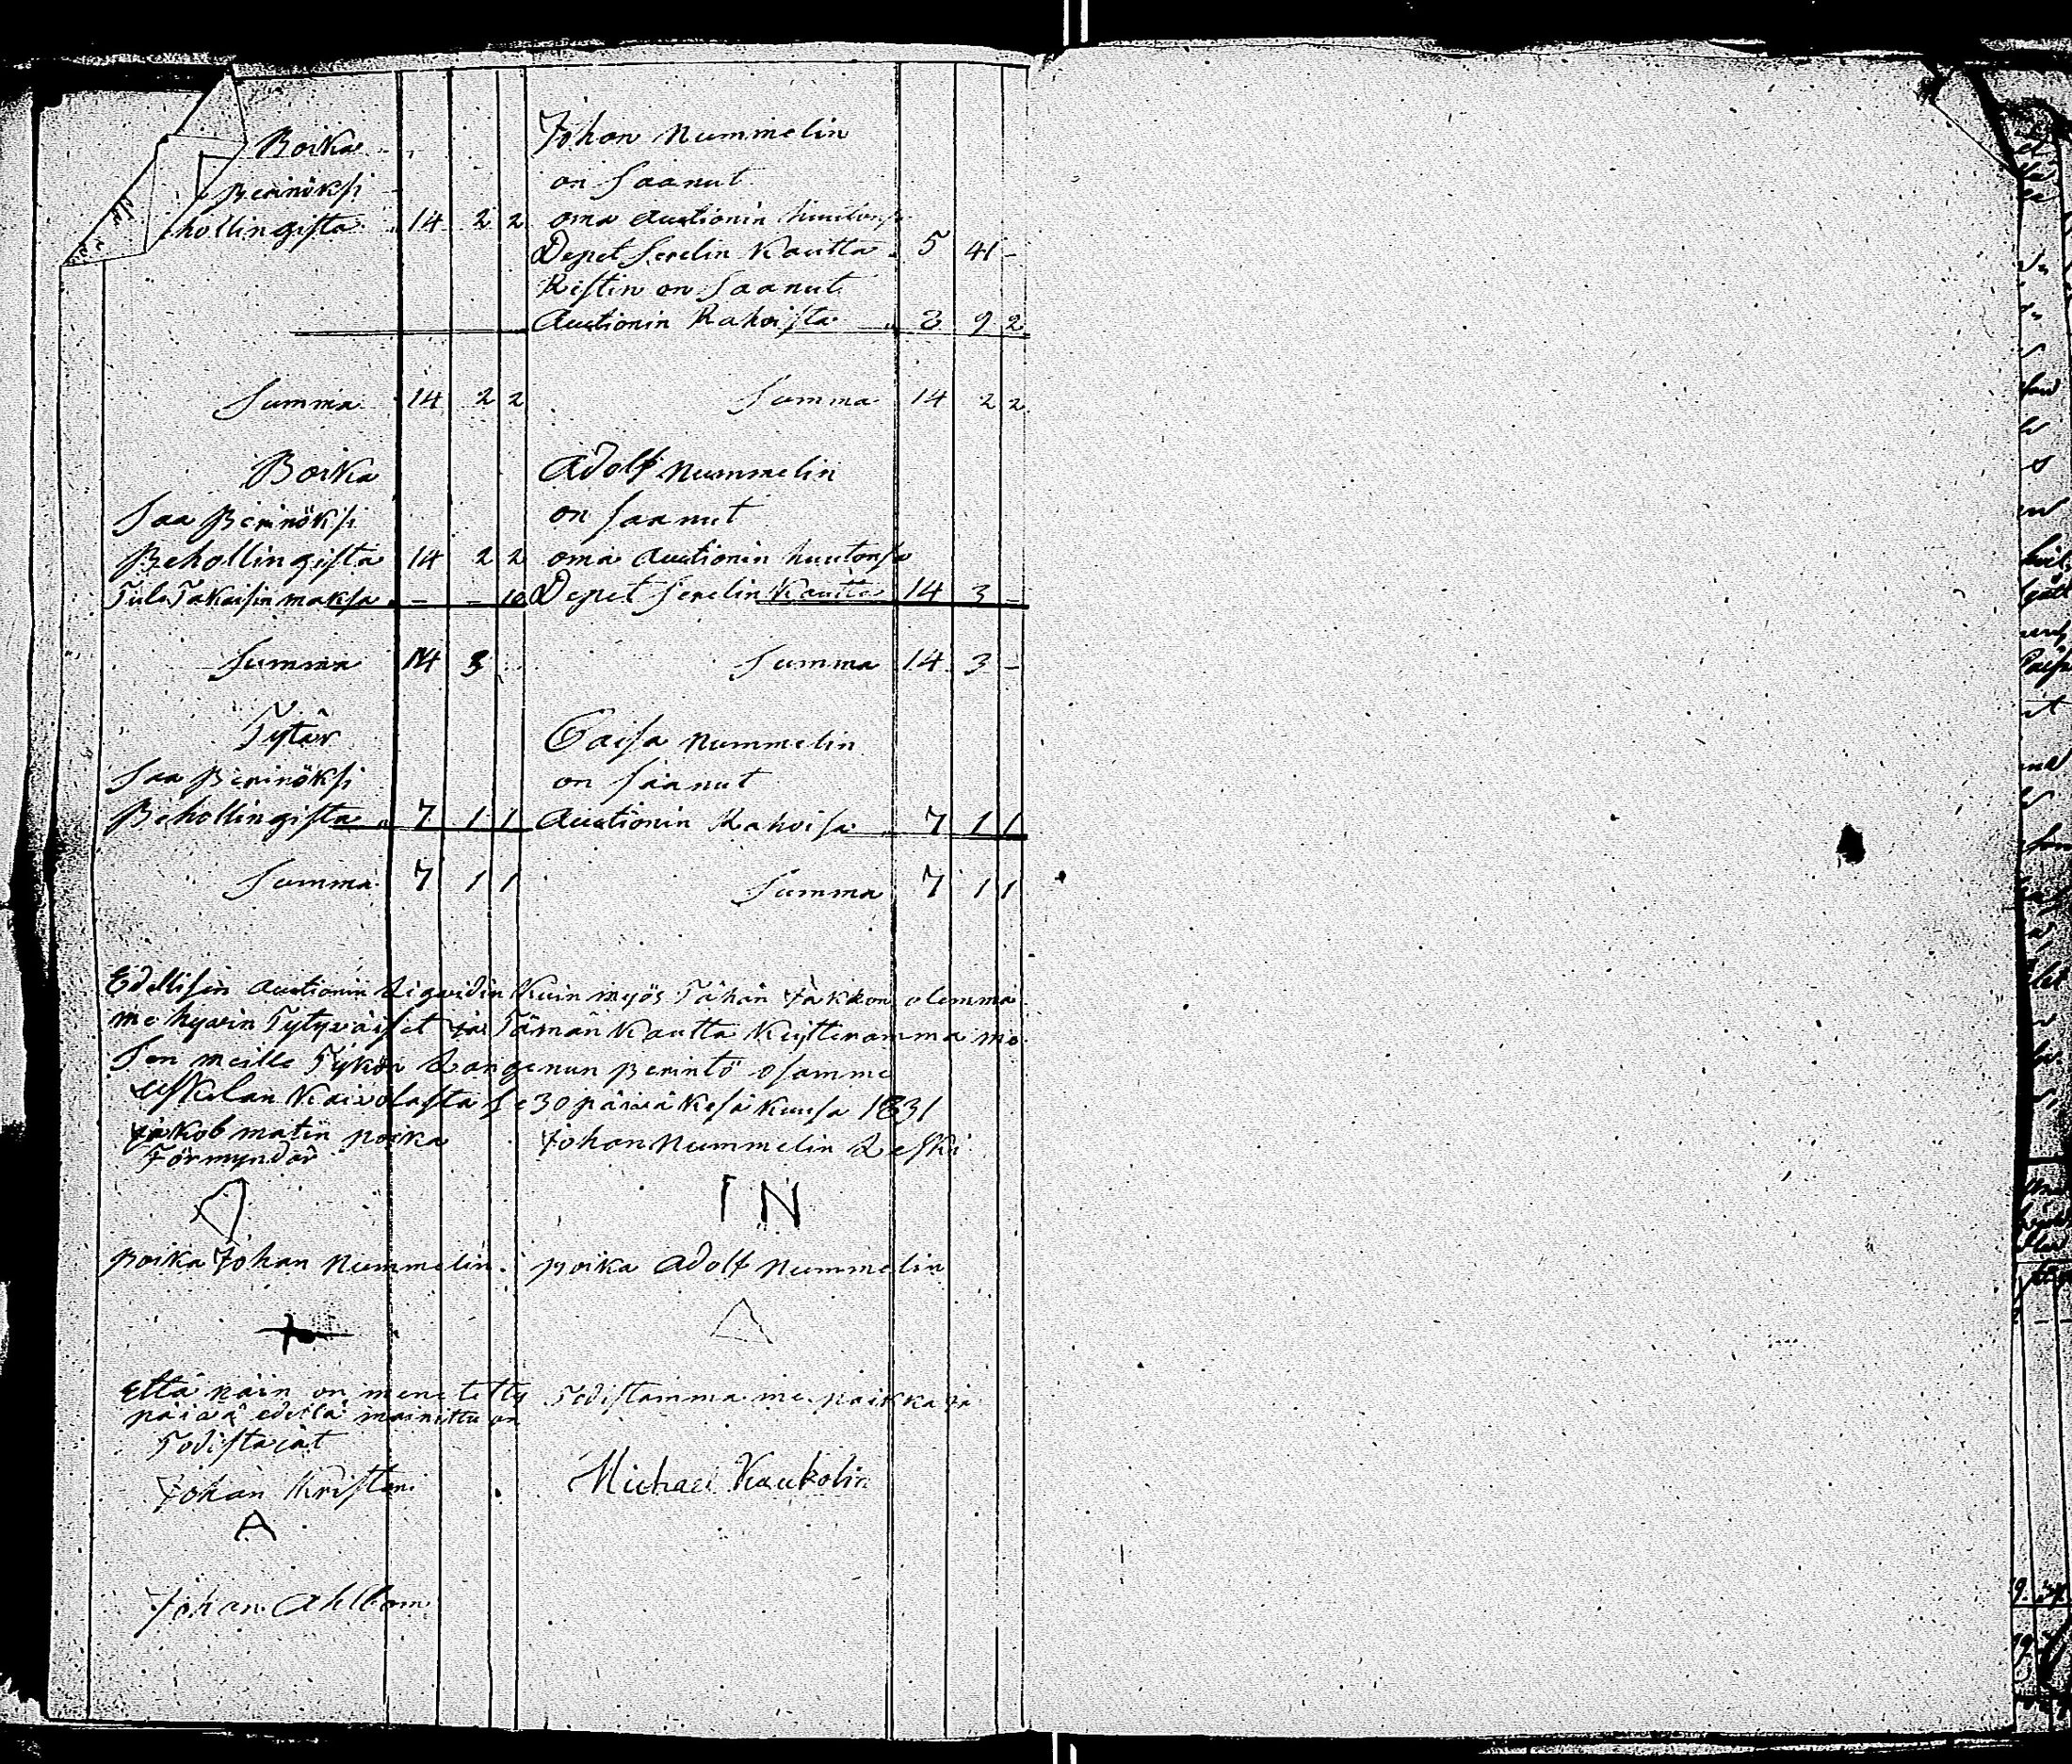 Boika Johan Nummelin
Perinöksi on saanut
hollingista 14 2 2 oma Auctionin huutonsa
Depet Serelin Kautta 5 41 -
Kistin on saanut
Auctionin Rahoista 8 9 2
Summa 14 2 2 Summa 14 2 2
Boika Adolf Nummelin
Saa Perinöksi on saanut
Behollingista 14 2 2 oma Auctionin huutonsa
Tule Takaisin maksa - - 10 Depet Serelin Kautta 14 3 -
Summa 14 3 Summa 14 3 -
Tytär Caisa Nummelin
Saa Perinöksi on saanut
Behollingista 7 1 1 Auctionin Rahoisa 7 1 1
Summa 7 1 1 Summa 7 1 1
Edellisin Auctionin Liqvidin Kuin myös Tähän Jakkon olemma
me hyvin Tytyväiset ja Tämän Kautta Kuitteramma me
Sen meille Tykön Langenun perintö osamme
Uskelan Kaivolasta se 30 päivä Kesä Kuusa 1831
Jakob matin poika Johan Nummelin Leski
Förmyndär
I N
poika Johan Nummelin poika Adolf Nummelin
Että näin on menetetty Todistamma me paikka ja
päivä edellä mainittu on
Todistavat
Johan Kristeri Michael Kaukolin
A
Johan Ahlbom